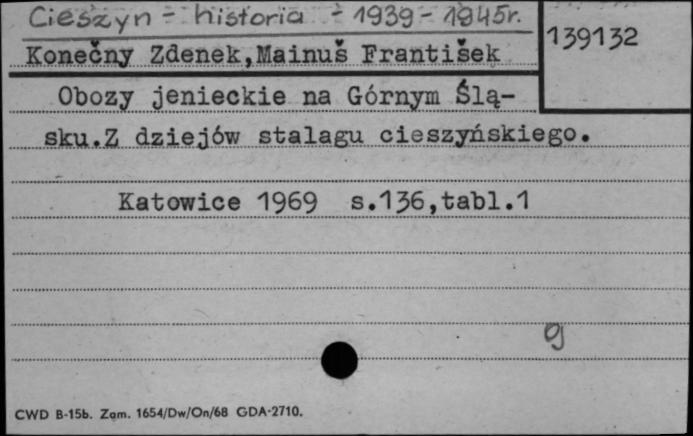 Cieszyn - historia - 1939-1945r.
139132
Konečny Zdenek,Mainuš František
Obozy jenieckie na Górnym Ślą-
sku.Z dziejów stalagu cieszyńskiego.
Katowice 1969 s.136,tabl.1
g
CWD B-15b. Zam. 1654/Dw/On/68 GDA-2710.